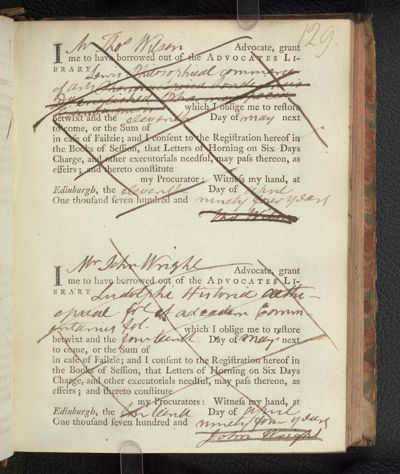 129
I Mr Thos Wilson Advocate, grant
me to have borrowed out of the ADVOCATES LI-
BRARY Lewis Philosophical commerce
of arts
which I oblige me to restore
betwixt and the eleventh Day of may next
to come, or the Sum of
in case of Failzie; and I consent to the Registration hereof in
the Books of Session, that Letters of Horning on Six Days
Charge, and other executorials needful, may pass thereon, as
effeirs; and thereto constitute
my Procurator: Witness my hand, at
Edinburgh, the eleventh Day of april
One thousand seven hundred and ninety four years
Tho Wilson
I Mr John Wright Advocate, grant
me to have borrowed out of the ADVOCATES LI-
BRARY Ludolphs Historia aethi-
opicae fol. et ad eadem Comm-
entarius fol. which I oblige me to restore
betwixt and the fourteenth Day of may next
to come, or the Sum of
in case of Failzie; and I consent to the Registration hereof in
the Books of Session, that Letters of Horning on Six Days
Charge, and other executorials needful, may pass thereon, as
effeirs; and thereto constitute
my Procurators: Witness my hand, at
Edinburgh, the fourteenth Day of april
One thousand seven hundred and ninety four years
John Wright